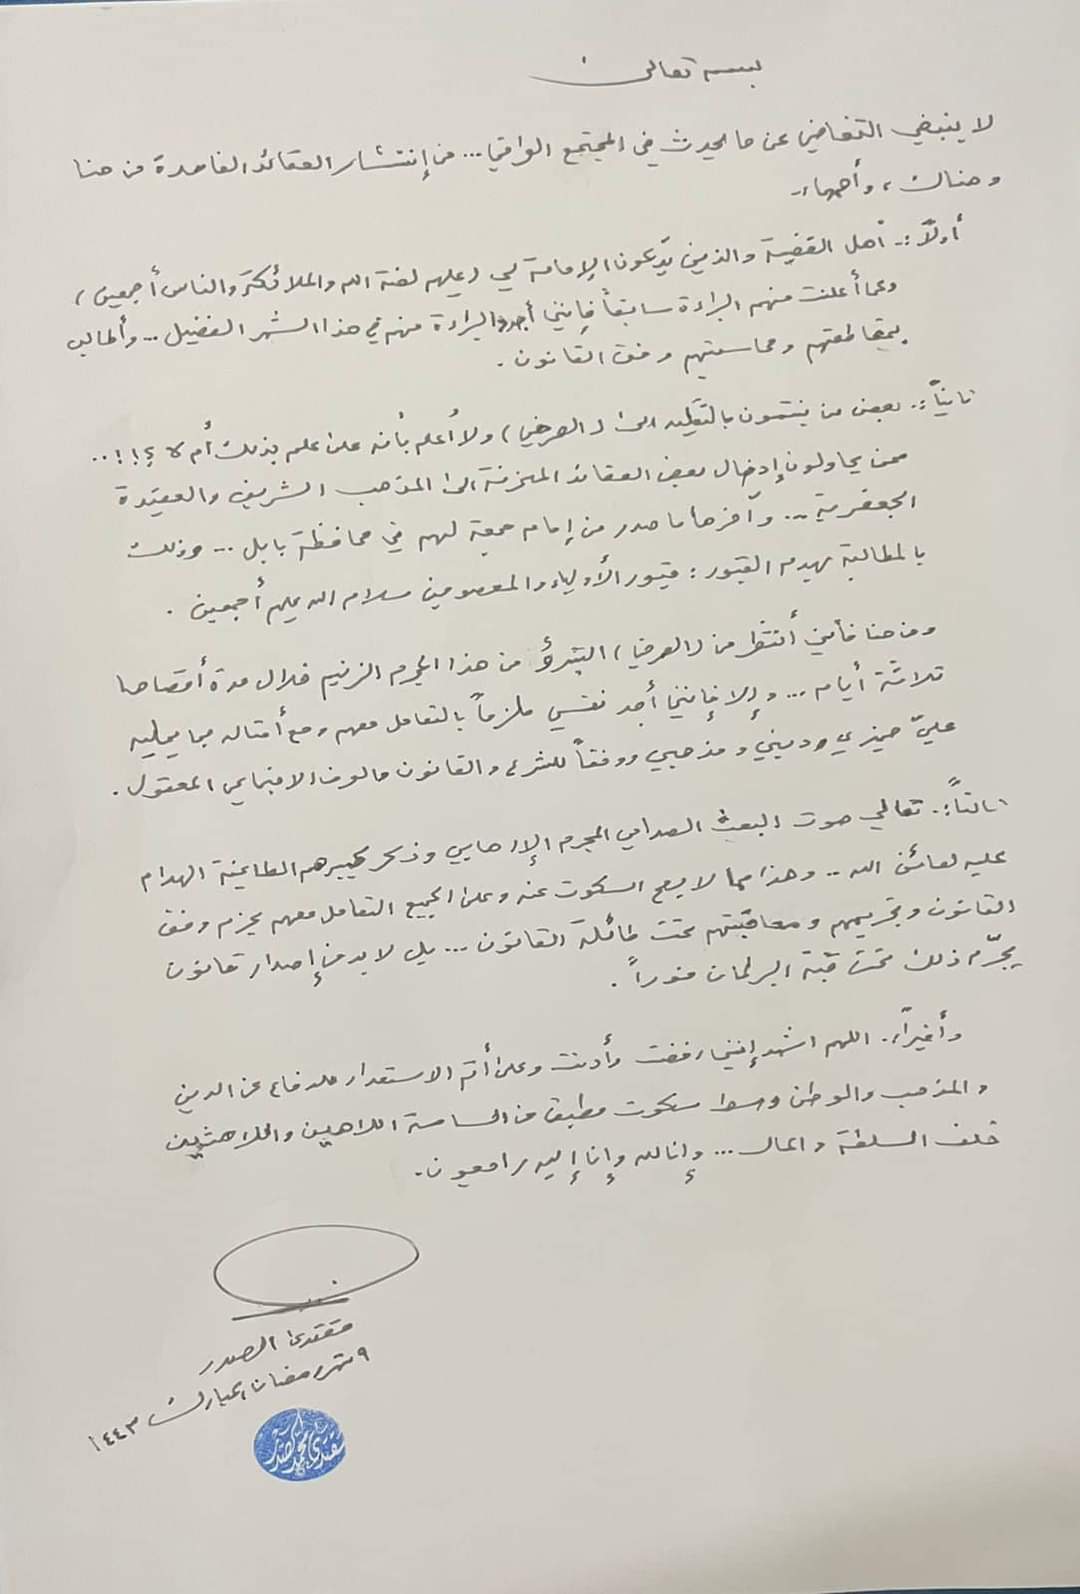 بسمه تعالى
لا ينبغي التغاضي عن ما يحدث في المجتمع العراقي ... من إنتشار العقائد الفاسدة من هنا
وهناك ، وأهمها:
أولاً :. أهل القضية والذين يدّعون الإمامة لي (عليهم لعنة الله والملائكة والناس أجمعين)
وكما أعلنت منهم البراءة سابقاً فإنني أجدد البراءة منهم في هذا الشهر الفضيل ... وأطالب
بمقاطعتهم ومحاسبتهم وفق القانون .
ثانياً :. بعض من ينتمون بالتقليد الى (الصرخي) ولا أعلم بأنه على علم بذلك أم لا ؟!!..
ممن يحاولون إدخال بعض العقائد المنحرفة الى المذهب الشريف والعقيدة
الجعفرية .. وآخرها ما صدر من إمام جمعة لهم في محافظة بابل ... وذلك
بالمطالبة بهدم القبور : قبور الأولياء والمعصومين سلام الله عليهم أجمعين .
ومن هنا فأنني أنتظر من (الصرخي) التبرؤ من هذا المجرم الزنيم خلال مدة أقصاها
ثلاثة أيام ... وإلا فإنني أجد نفسي ملزماً بالتعامل معهم ومع أمثاله بما يمليه
عليّ حيزي وديني ومذهبي ووفقاً للشرع والقانون والعرف الاجتماعي المعقول .
ثالثاً :. تعالي صوت البعث الصدامي المجرم الإرهابي وذكر كبيرهم الطاغية الهدام
عليه لعائن الله .. وهذا مما لا يصح السكوت عنه وعلى الجميع التعامل معهم بحزم وفق
القانون وتجريمهم ومعاقبتهم تحت طائلة القانون ... بل لا بد من إصدار قانون
يجرّم ذلك تحت قبة البرلمان فوراً .
وأخيراً:. اللهم اشهد إنني رفضت وأدنت وعلى أتم الاستعداد للدفاع عن الدين
والمذهب والوطن وسط سكوت مطبق من الساسة اللاهين واللاهثين
خلف السلطة والمال ... وإنا لله وإنا إليه راجعون .
مقتدى الصدر
٩ شهر رمضان المبارك ١٤٤٣
مقتدى محمد الصدر